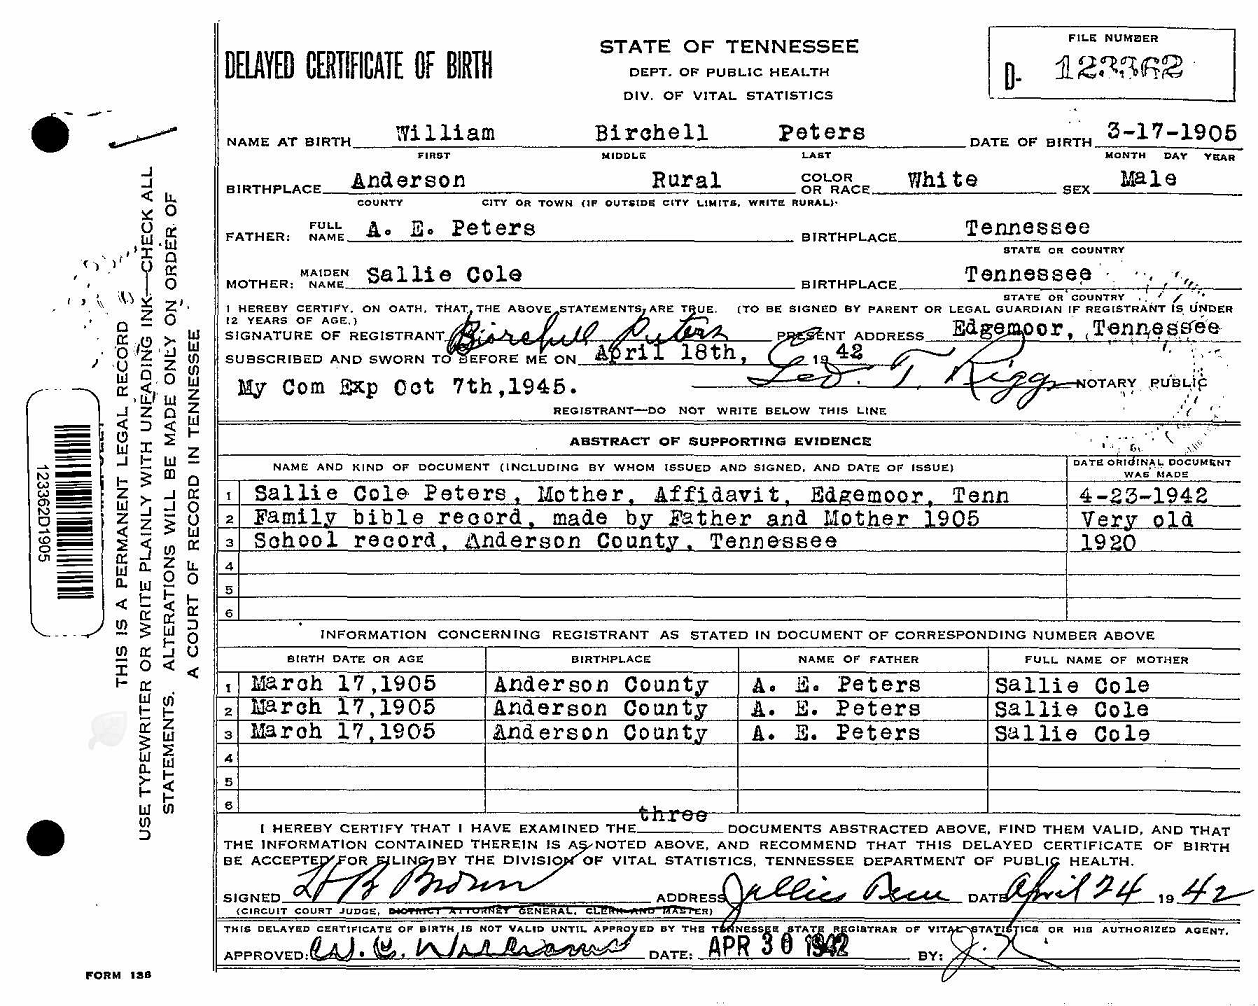 DELAYED CERTIFICATE OF BIRTH
STATE OF TENNESSEE
DEPT. OF PUBLIC HEALTH
DIV. OF VITAL STATISTICS
FILE NUMBER
D- 123362
NAME AT BIRTH William Birchell Peters DATE OF BIRTH 3-17-1905
FIRST MIDDLE LAST MONTH DAY YEAR
BIRTHPLACE Anderson Rural COLOR OR RACE White SEX Male
COUNTY CITY OR TOWN (IF OUTSIDE CITY LIMITS, WRITE RURAL).
FATHER: FULL NAME A. E. Peters BIRTHPLACE Tennessee
STATE OR COUNTRY
MOTHER: MAIDEN NAME Sallie Cole BIRTHPLACE Tennessee
STATE OR COUNTRY
I HEREBY CERTIFY, ON OATH, THAT THE ABOVE STATEMENTS ARE TRUE. (TO BE SIGNED BY PARENT OR LEGAL GUARDIAN IF REGISTRANT IS UNDER
12 YEARS OF AGE.)
SIGNATURE OF REGISTRANT Birchell Peters PRESENT ADDRESS Edgemoor, Tennessee
SUBSCRIBED AND SWORN TO BEFORE ME ON April 18th, 19 42
My Com Exp Oct 7th,1945. Geo. T. Riggs NOTARY PUBLIC
REGISTRANT—DO NOT WRITE BELOW THIS LINE
ABSTRACT OF SUPPORTING EVIDENCE
NAME AND KIND OF DOCUMENT (INCLUDING BY WHOM ISSUED AND SIGNED, AND DATE OF ISSUE) DATE ORIGINAL DOCUMENT WAS MADE
1 Sallie Cole Peters, Mother, Affidavit, Edgemoor, Tenn 4-23-1942
2 Family bible record, made by Father and Mother 1905 Very old
3 School record, Anderson County, Tennessee 1920
4
5
6
INFORMATION CONCERNING REGISTRANT AS STATED IN DOCUMENT OF CORRESPONDING NUMBER ABOVE
BIRTH DATE OR AGE BIRTHPLACE NAME OF FATHER FULL NAME OF MOTHER
1 March 17,1905 Anderson County A. E. Peters Sallie Cole
2 March 17,1905 Anderson County A. E. Peters Sallie Cole
3 March 17,1905 Anderson County A. E. Peters Sallie Cole
4
5
6
I HEREBY CERTIFY THAT I HAVE EXAMINED THE three DOCUMENTS ABSTRACTED ABOVE, FIND THEM VALID, AND THAT
THE INFORMATION CONTAINED THEREIN IS AS NOTED ABOVE, AND RECOMMEND THAT THIS DELAYED CERTIFICATE OF BIRTH
BE ACCEPTED FOR FILING BY THE DIVISION OF VITAL STATISTICS, TENNESSEE DEPARTMENT OF PUBLIC HEALTH.
SIGNED H B Brown ADDRESS DATE April 24 19 42
(CIRCUIT COURT JUDGE, DISTRICT ATTORNEY GENERAL, CLERK AND MASTER)
THIS DELAYED CERTIFICATE OF BIRTH IS NOT VALID UNTIL APPROVED BY THE TENNESSEE STATE REGISTRAR OF VITAL STATISTICS OR HIS AUTHORIZED AGENT.
APPROVED: W. C. Williams DATE: APR 30 1942 BY:
FORM 136
THIS IS A PERMANENT LEGAL RECORD
USE TYPEWRITER OR WRITE PLAINLY WITH UNFADING INK—CHECK ALL
STATEMENTS. ALTERATIONS WILL BE MADE ONLY ON ORDER OF
A COURT OF RECORD IN TENNESSEE
123362D1905